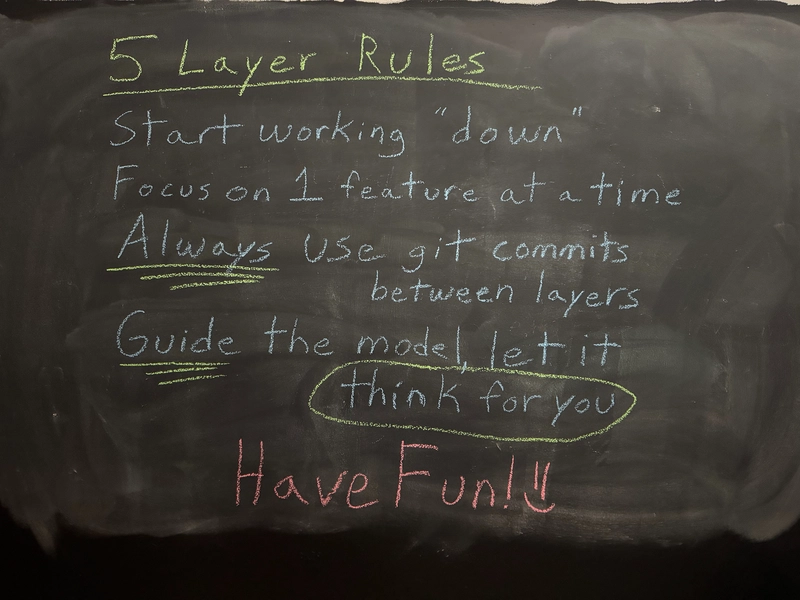 5 Layer Rules
Start working "down"
Focus on 1 feature at a time
Always use git commits
between layers
Guide the model, let it
think for you
Have Fun!